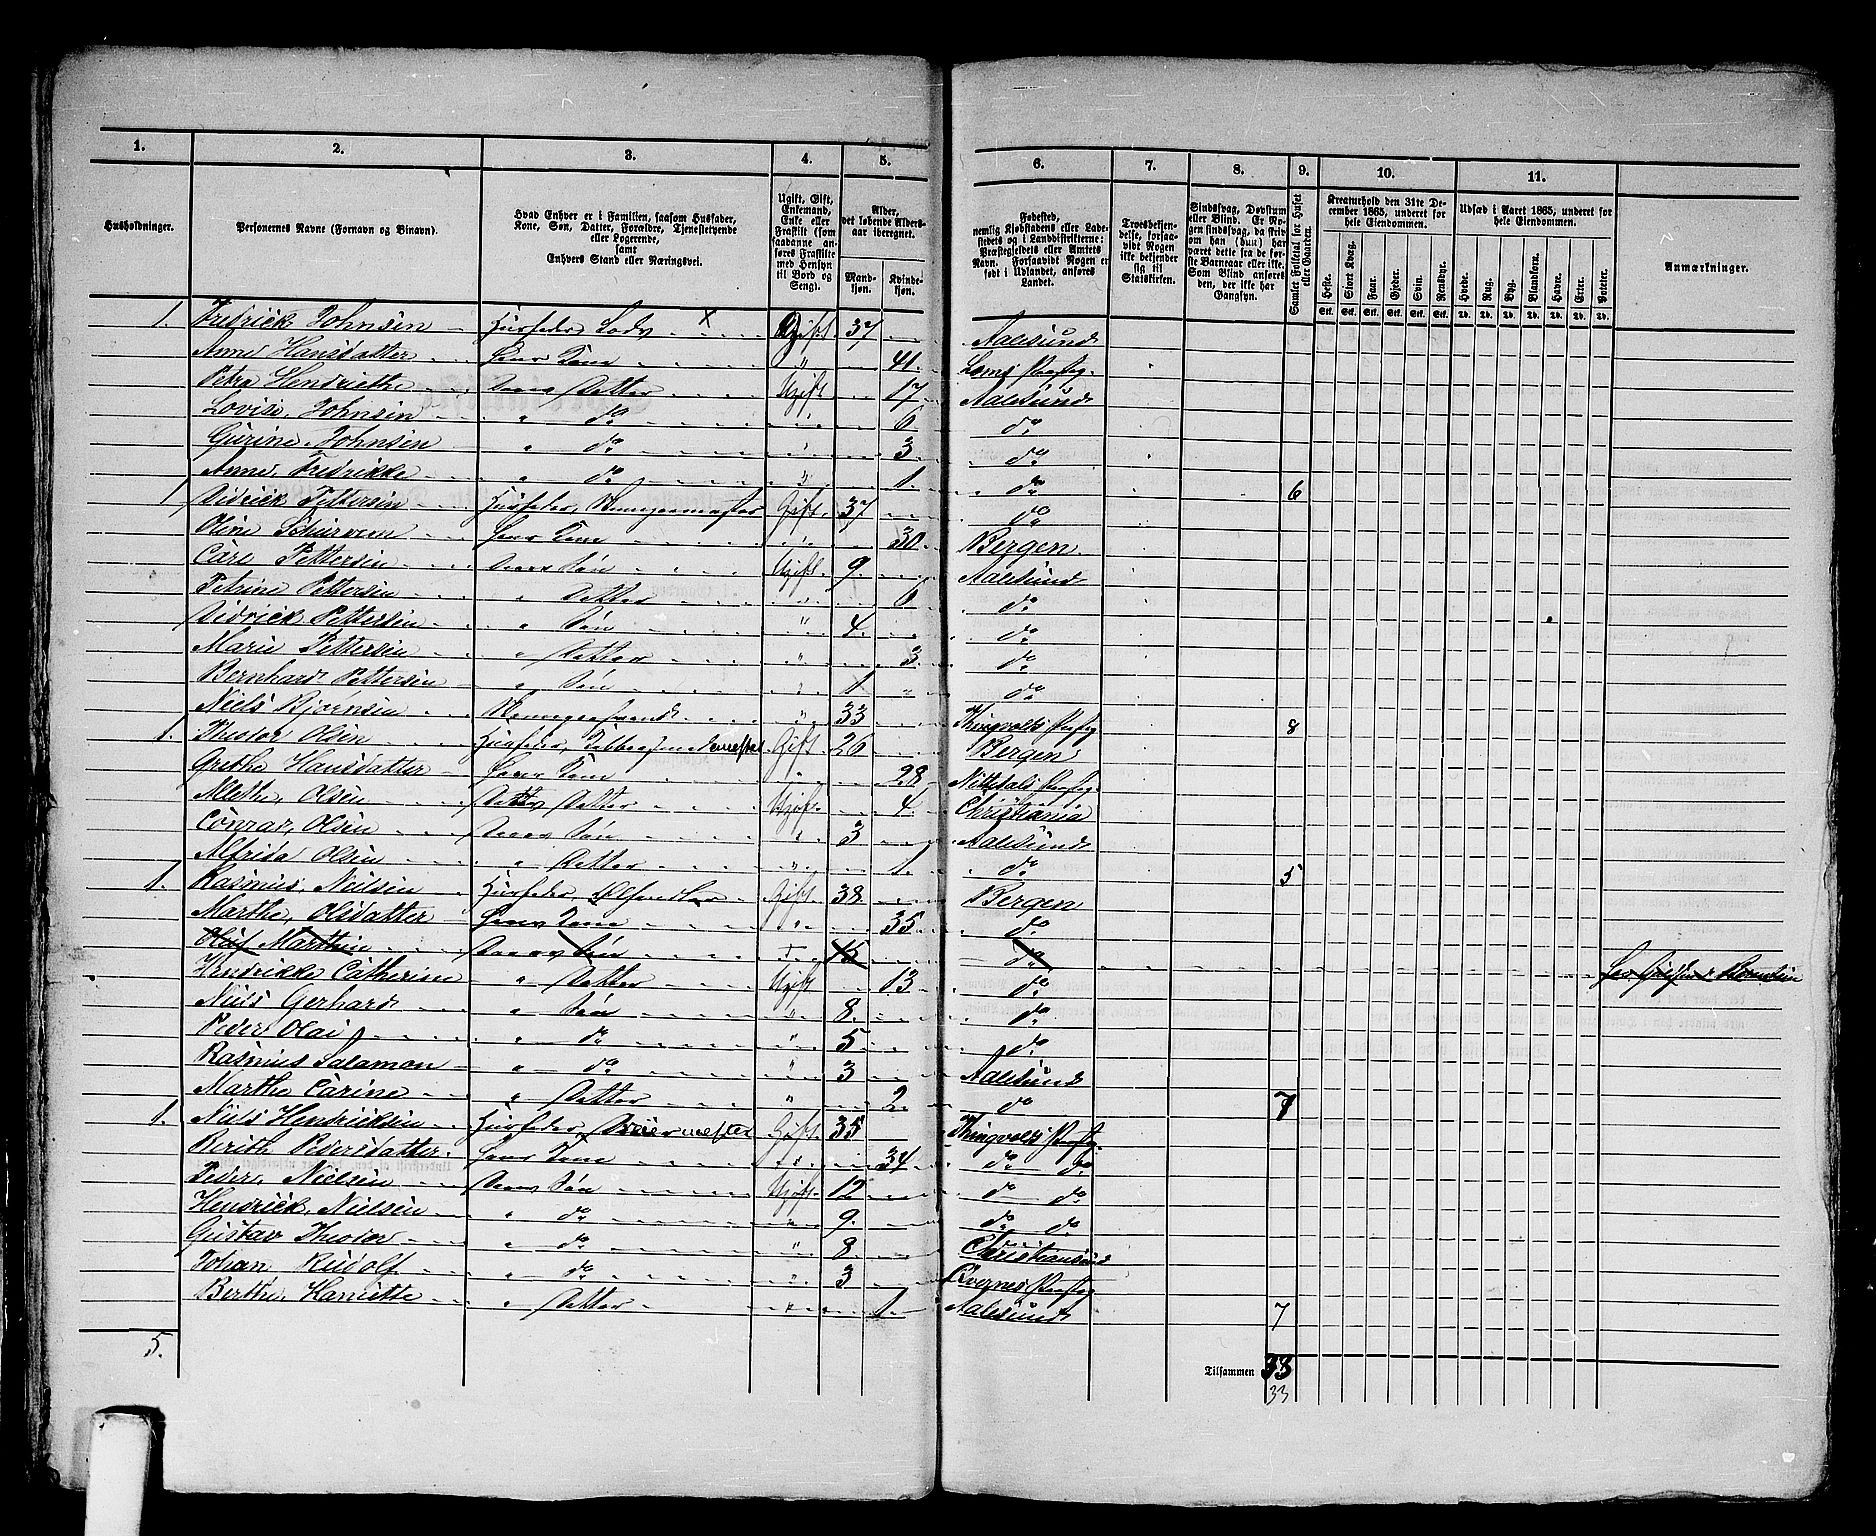 1. 2. 3. 4. 5. 6. 7. 8. 9. 10. 11.
Husholdninger.
Personernes Navne (Fornavn og Binavn).
Hvad Enhver er i Familien, saasom Husfader,
Kone, Søn, Datter, Forældre, Tjenestetyende
eller Logerende,
samt
Enhvers Stand eller Næringsvei.
Ugift, Gift,
Enkemand,
Enke eller
Fraskilt (som
saadanne an-
føres Fraskilte
med Hensyn
til Bord og
Seng).
Alder,
det løbende Alders-
aar iberegnet.
Mand-
kjøn.
Kvinde-
kjøn.
Fødested,
nemlig Kjøbstadens eller Lade-
stedets og i Landdistrikterne:
Præstegjeldets eller Amtets
Navn. Forsaavidt Nogen er
født i Udlandet, anføres
Landet.
Troesbekjen-
delse, forsaa-
vidt Nogen
ikke bekjender
sig til
Statskirken.
Sindssvag, Døvstum
eller Blind. Er No-
gen sindssvag, da skriv
om han (hun) har
været dette fra de før-
ste Barneaar eller ikke.
Som Blind anføres
den, der ikke har
Gangsyn.
Samlet Folketal for Huset
eller Gaarden.
Kreaturhold den 31te De-
cember 1865, underet for
hele Eiendommen.
Heste. Stort Kvæg. Faar. Gjeder. Svin. Rensdyr.
Stk. Stk. Stk. Stk. Stk. Stk.
Udsæd i Aaret 1865, underet for
hele Eiendommen.
Hvede. Rug. Byg. Blandkorn. Havre. Erter. Poteter.
Td. Td. Td. Td. Td. Td. Td.
Anmærkninger.
1. Fredrick Johnsen Husfader, Lods x Gift 37 Aalesund
Anne Hansdatter Hans Kone " 41. Loms Præstg.
Petra Hendriethe Deres Datter Ugift 17 Aalesund
Lovise, Johnsen " do 6 do
Gurine, Johnsen " do 3 do
Anne, Fredrikke " do " 1. do 6
1 Didrick Pettersen Husfader, Gift. 37 do
Oline Hans Kone 30 Bergen
Carl Pettersen Deres Søn Ugift. 9. Aalesund
Petrine Pettersen " Datter 6 do
Didrick Pettersen " Søn " 4. do
Marie Pettersen " Datter " 3 do
Bernhard Pettersen " Søn " 1 " do
Niels Bjørnsen " 33 Thingvolds Præstg 8
1. Theodor Olsen Husfader, Gift. 26 Bergen
Grethe Hansdatter Hans Kone " 28 Nittedals Præstg.
Mathe, Olsen Deres Datter Ugift. 4. Christiania
Conrad, Olsen Deres Søn " 3 Aalesund
Alfrida Olsen " Datter " 1. do 5
1. Rasmus, Nielsen Husfader, Gift. 38 Bergen
Marthe, Olsdatter Hans Kone " 35 do
Oluf Marthin Deres Søn 15 do
Hendrikke Catherine " Datter Ugift 13 do
Niels Gerhard " Søn " 8. do
Peder Olai " do " 5 do
Rasmus Salamon " do " 3 Aalesund
Marthe Carine " Datter " 2. do 7
1. Niels Hendricksen Husfader, Gift. 35 Thingvolds Præstg.
Berith Pedersdatter Hans Kone " 34 do do
Peder, Nielsen Deres Søn Ugift. 12 do do
Hendrick, Nielsen " do " 9. do do
Gustav Theodor " do " 8 Christiansund
Johan Rudolf " do " 3 Qvernes Præstg
Berthe, Hanriette " Datter " 1. Aalesund 7
5. Tilsammen 33
33